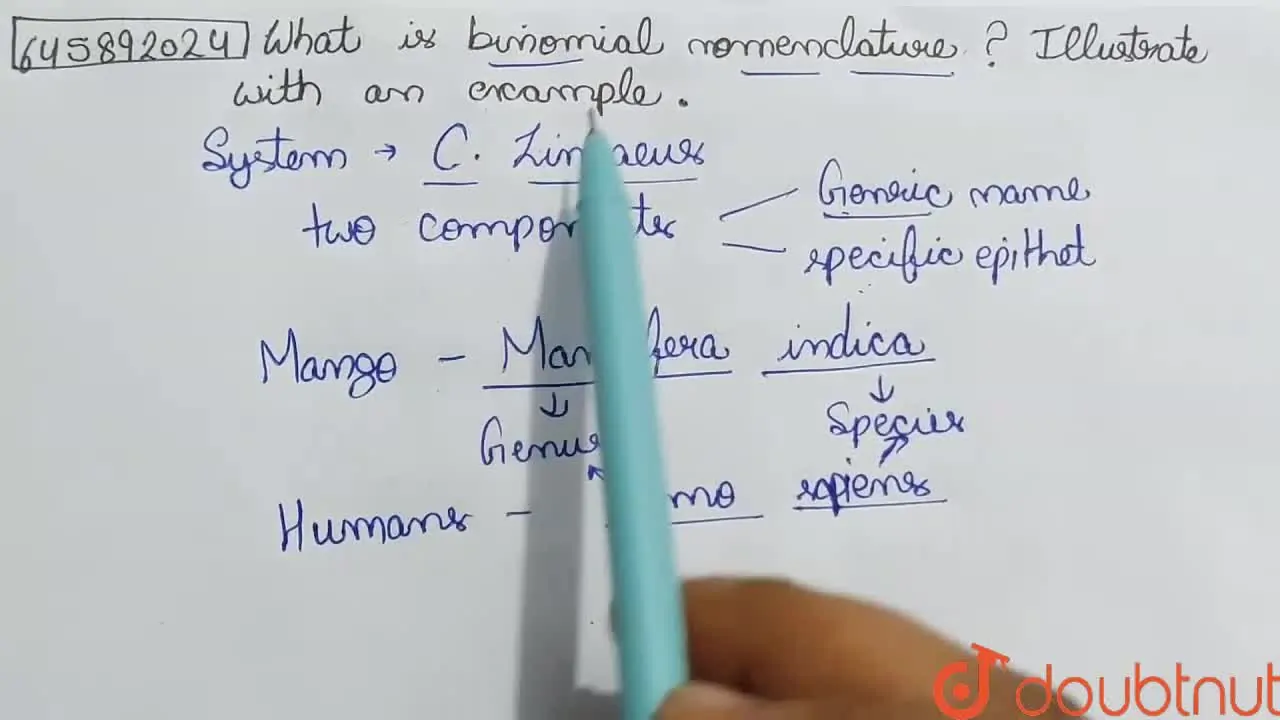 645892024 What is binomial nomenclature ? Illustrate
with an example.
System → C.
two
Generic name
specific epithet
Mango - indica
↓ ↓
Genus Species
Humans - sapiens
doubtnut